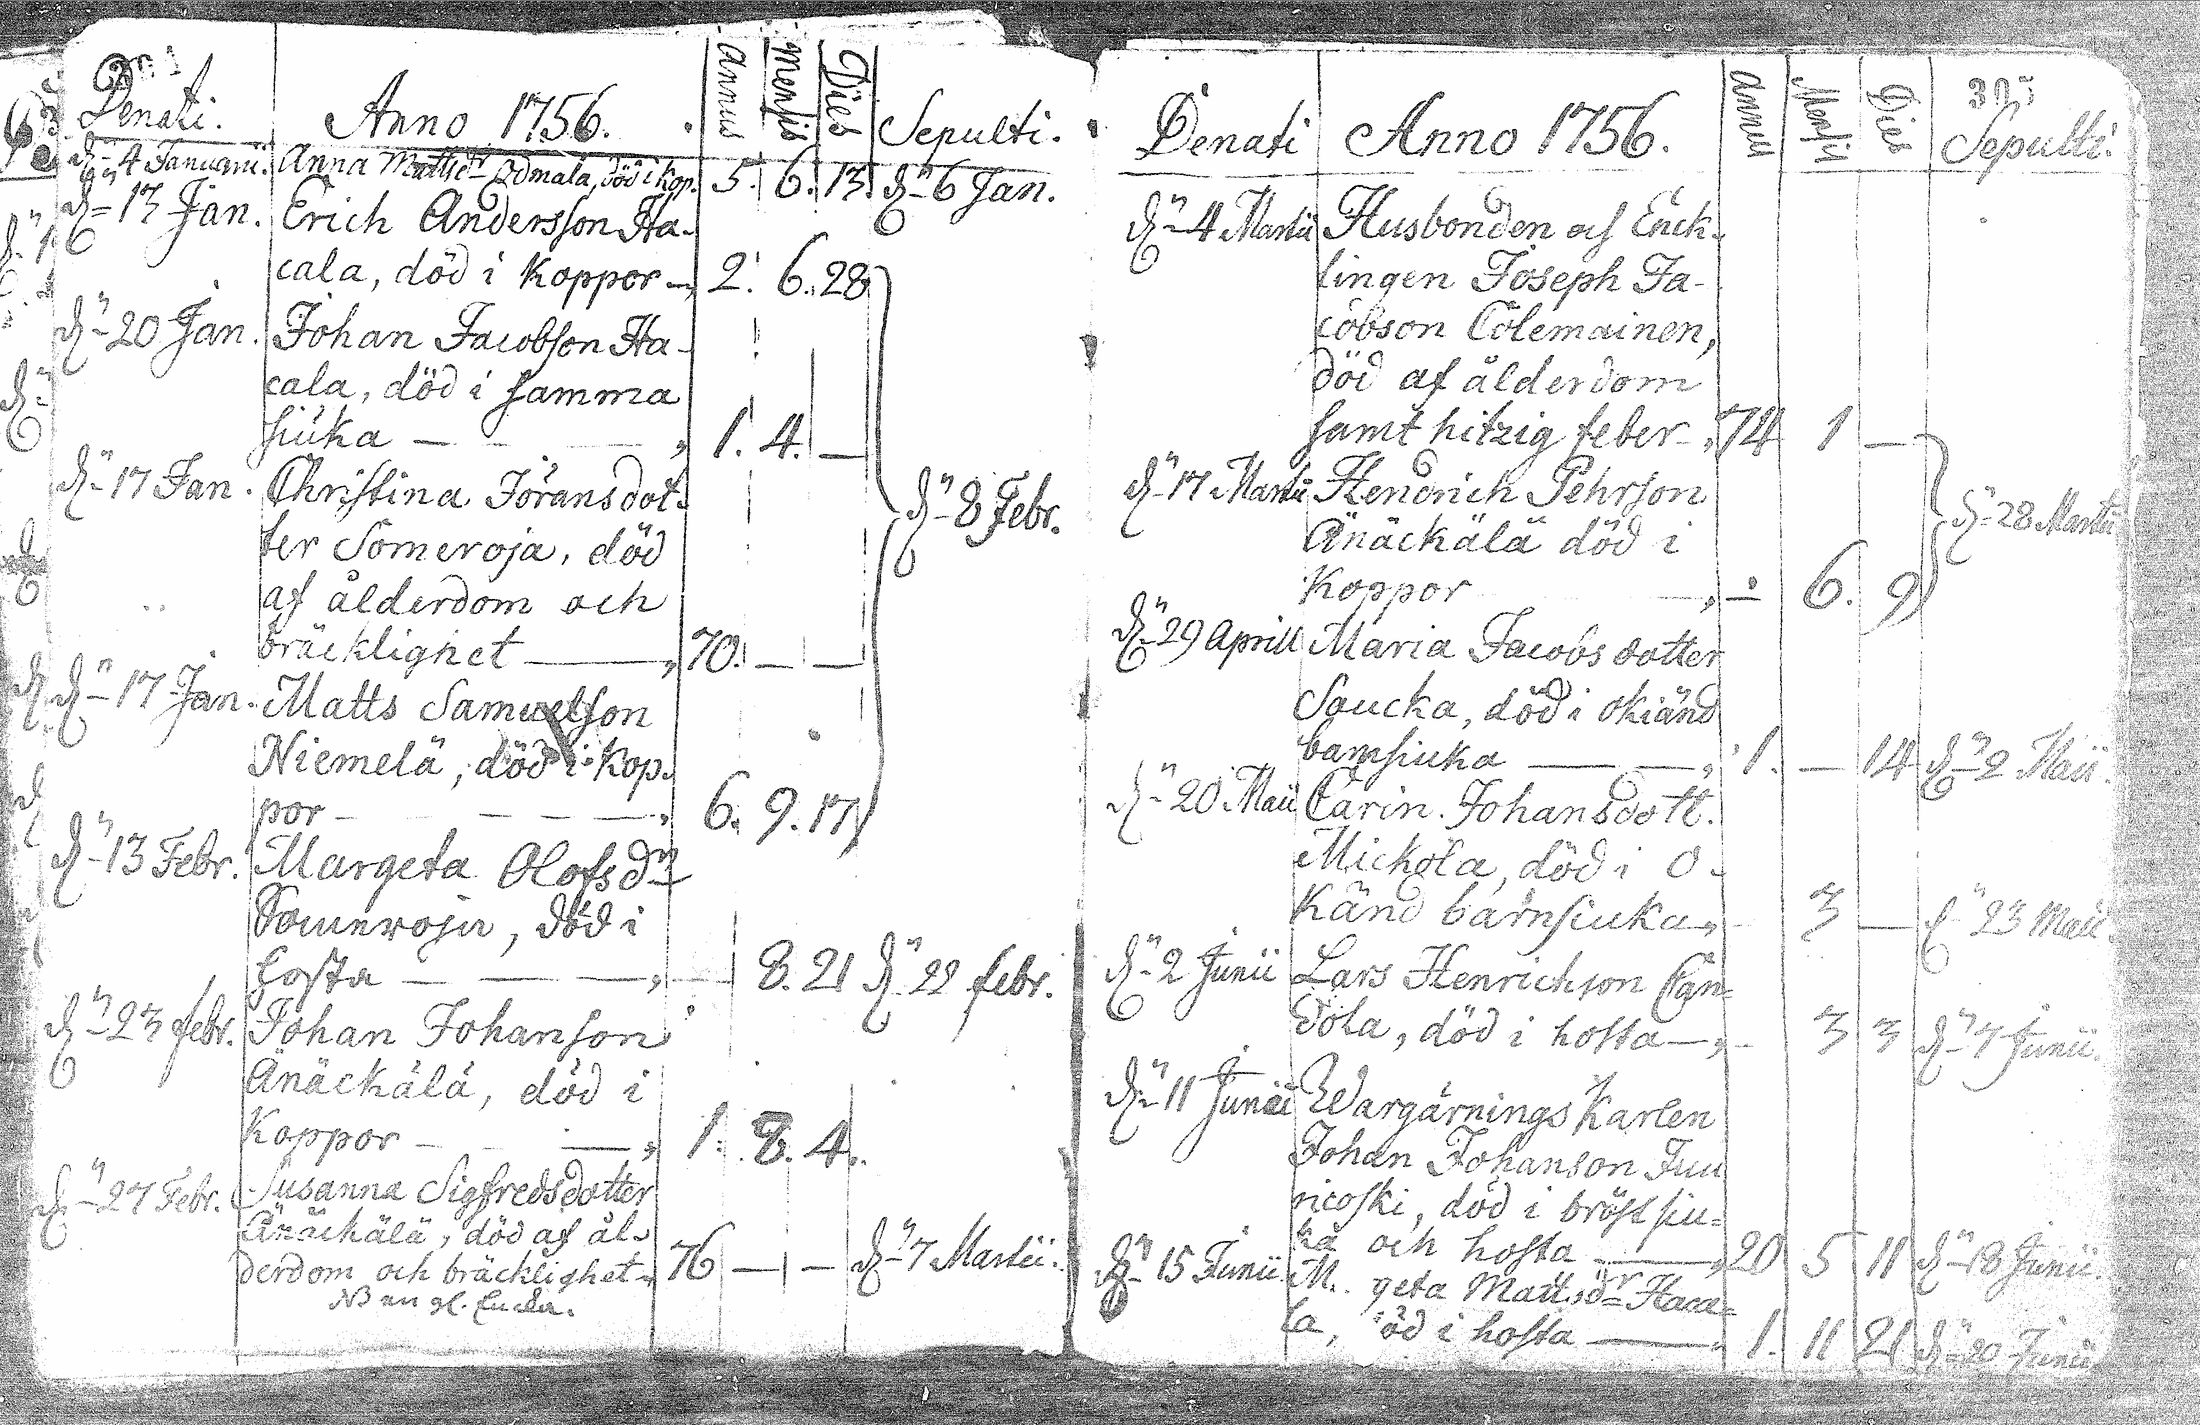 Denati. Anno 1756. Annus Mensis Dies Sepulti.
dn 4 Januarii. Anna Mattsdr Ydmala, död i Kop. 5. 6. 13. dn 6 Jan.
dn 13 Jan. Erich Andersson Ha-
cala, död i Koppor 2. 6. 28
dn 20 Jan. Johan Jacobson Ha-
cala, död i samma
siuka 1. 4. —
dn 17 Jan. Christina Jöransdot-
ter Someroja, död
af ålderdom och
bräcklighet 70. — — dn 8 Febr.
dn 17 Jan. Matts Samuelson
Niemelä, död i Kop-
por 6. 9. 17
dn 13 Febr. Margeta Olofsdr
Someroja, död i
hosta — 8. 21 dn 22 febr.
dn 23 febr. Johan Johanson
Änäckälä, död i
Koppor 1. 8. 4.
dn 27 Febr. Susanna Sigfredsdotter
Änäckälä, död af ål-
derdom och bräcklighet 76 — — dn 7 Martii.
NB en gl. Encka.
305
Denati Anno 1756. Annus Mensis Dies Sepulti.
dn 4 Martii Husbonden och Enck-
lingen Joseph Ja-
cobson Colemainen,
död af ålderdom
samt hitzig feber 74 1 —
dn 17 Martii Hendrich Pehrson
Änäckälä död i
Koppor — 6. 9 dn 28 Martii
dn 29 Aprill Maria Jacobsdotter
Saucka, död i okiänd
barnsiuka 1. — 14 dn 2 Maii.
dn 20 Maii Carin Johansdott.
Mickola, död i o-
känd barnsiuka 3 — dn 23 Maii.
dn 2 Junii Lars Henrichson Can-
dola, död i hosta 3 3 dn 7 Junii.
dn 11 Junii Wargärnings Karlen
Johan Johanson Juu
ricoski, död i bröst siu-
ka och hosta 20 5 11 dn 18 Junii.
dn 15 Junii M geta Mattsdr Haca-
la, öd i hosta 1. 11 21 dn 20 Junii